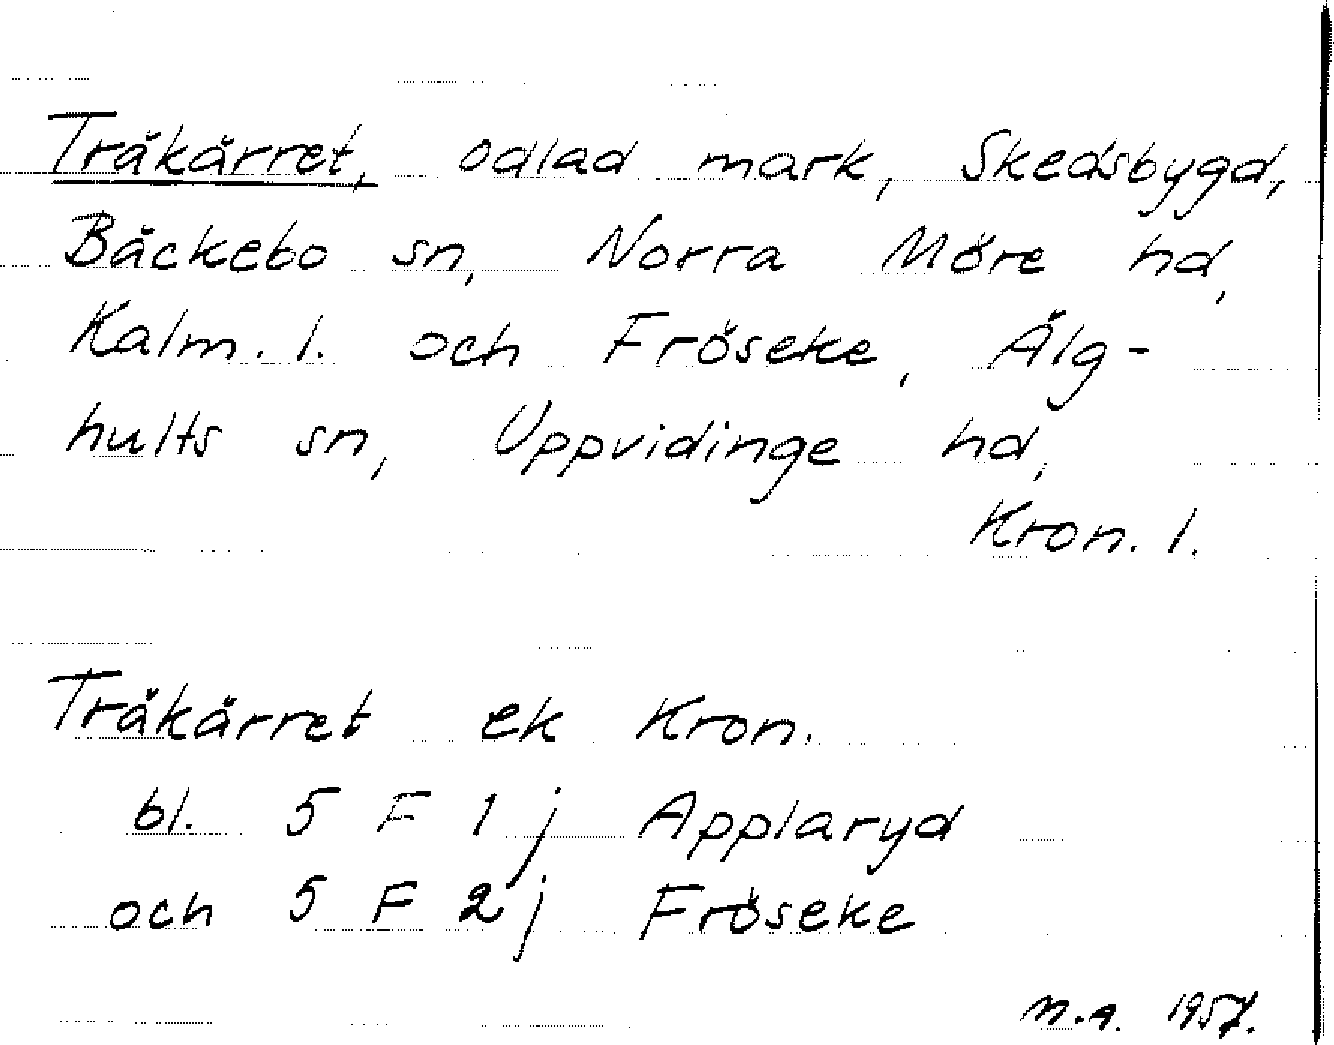 Tråkärret, odlad mark, Skedsbygd,
Bäckebo sn, Norra Möre hd,
Kalm. l. och Fröseke, Älg-
hults sn, Uppvidinge hd,
Kron. l.
Tråkärret ek Kron.
bl. 5 F 1 j Applaryd
och 5 F 2 j Fröseke
M.A. 1957.